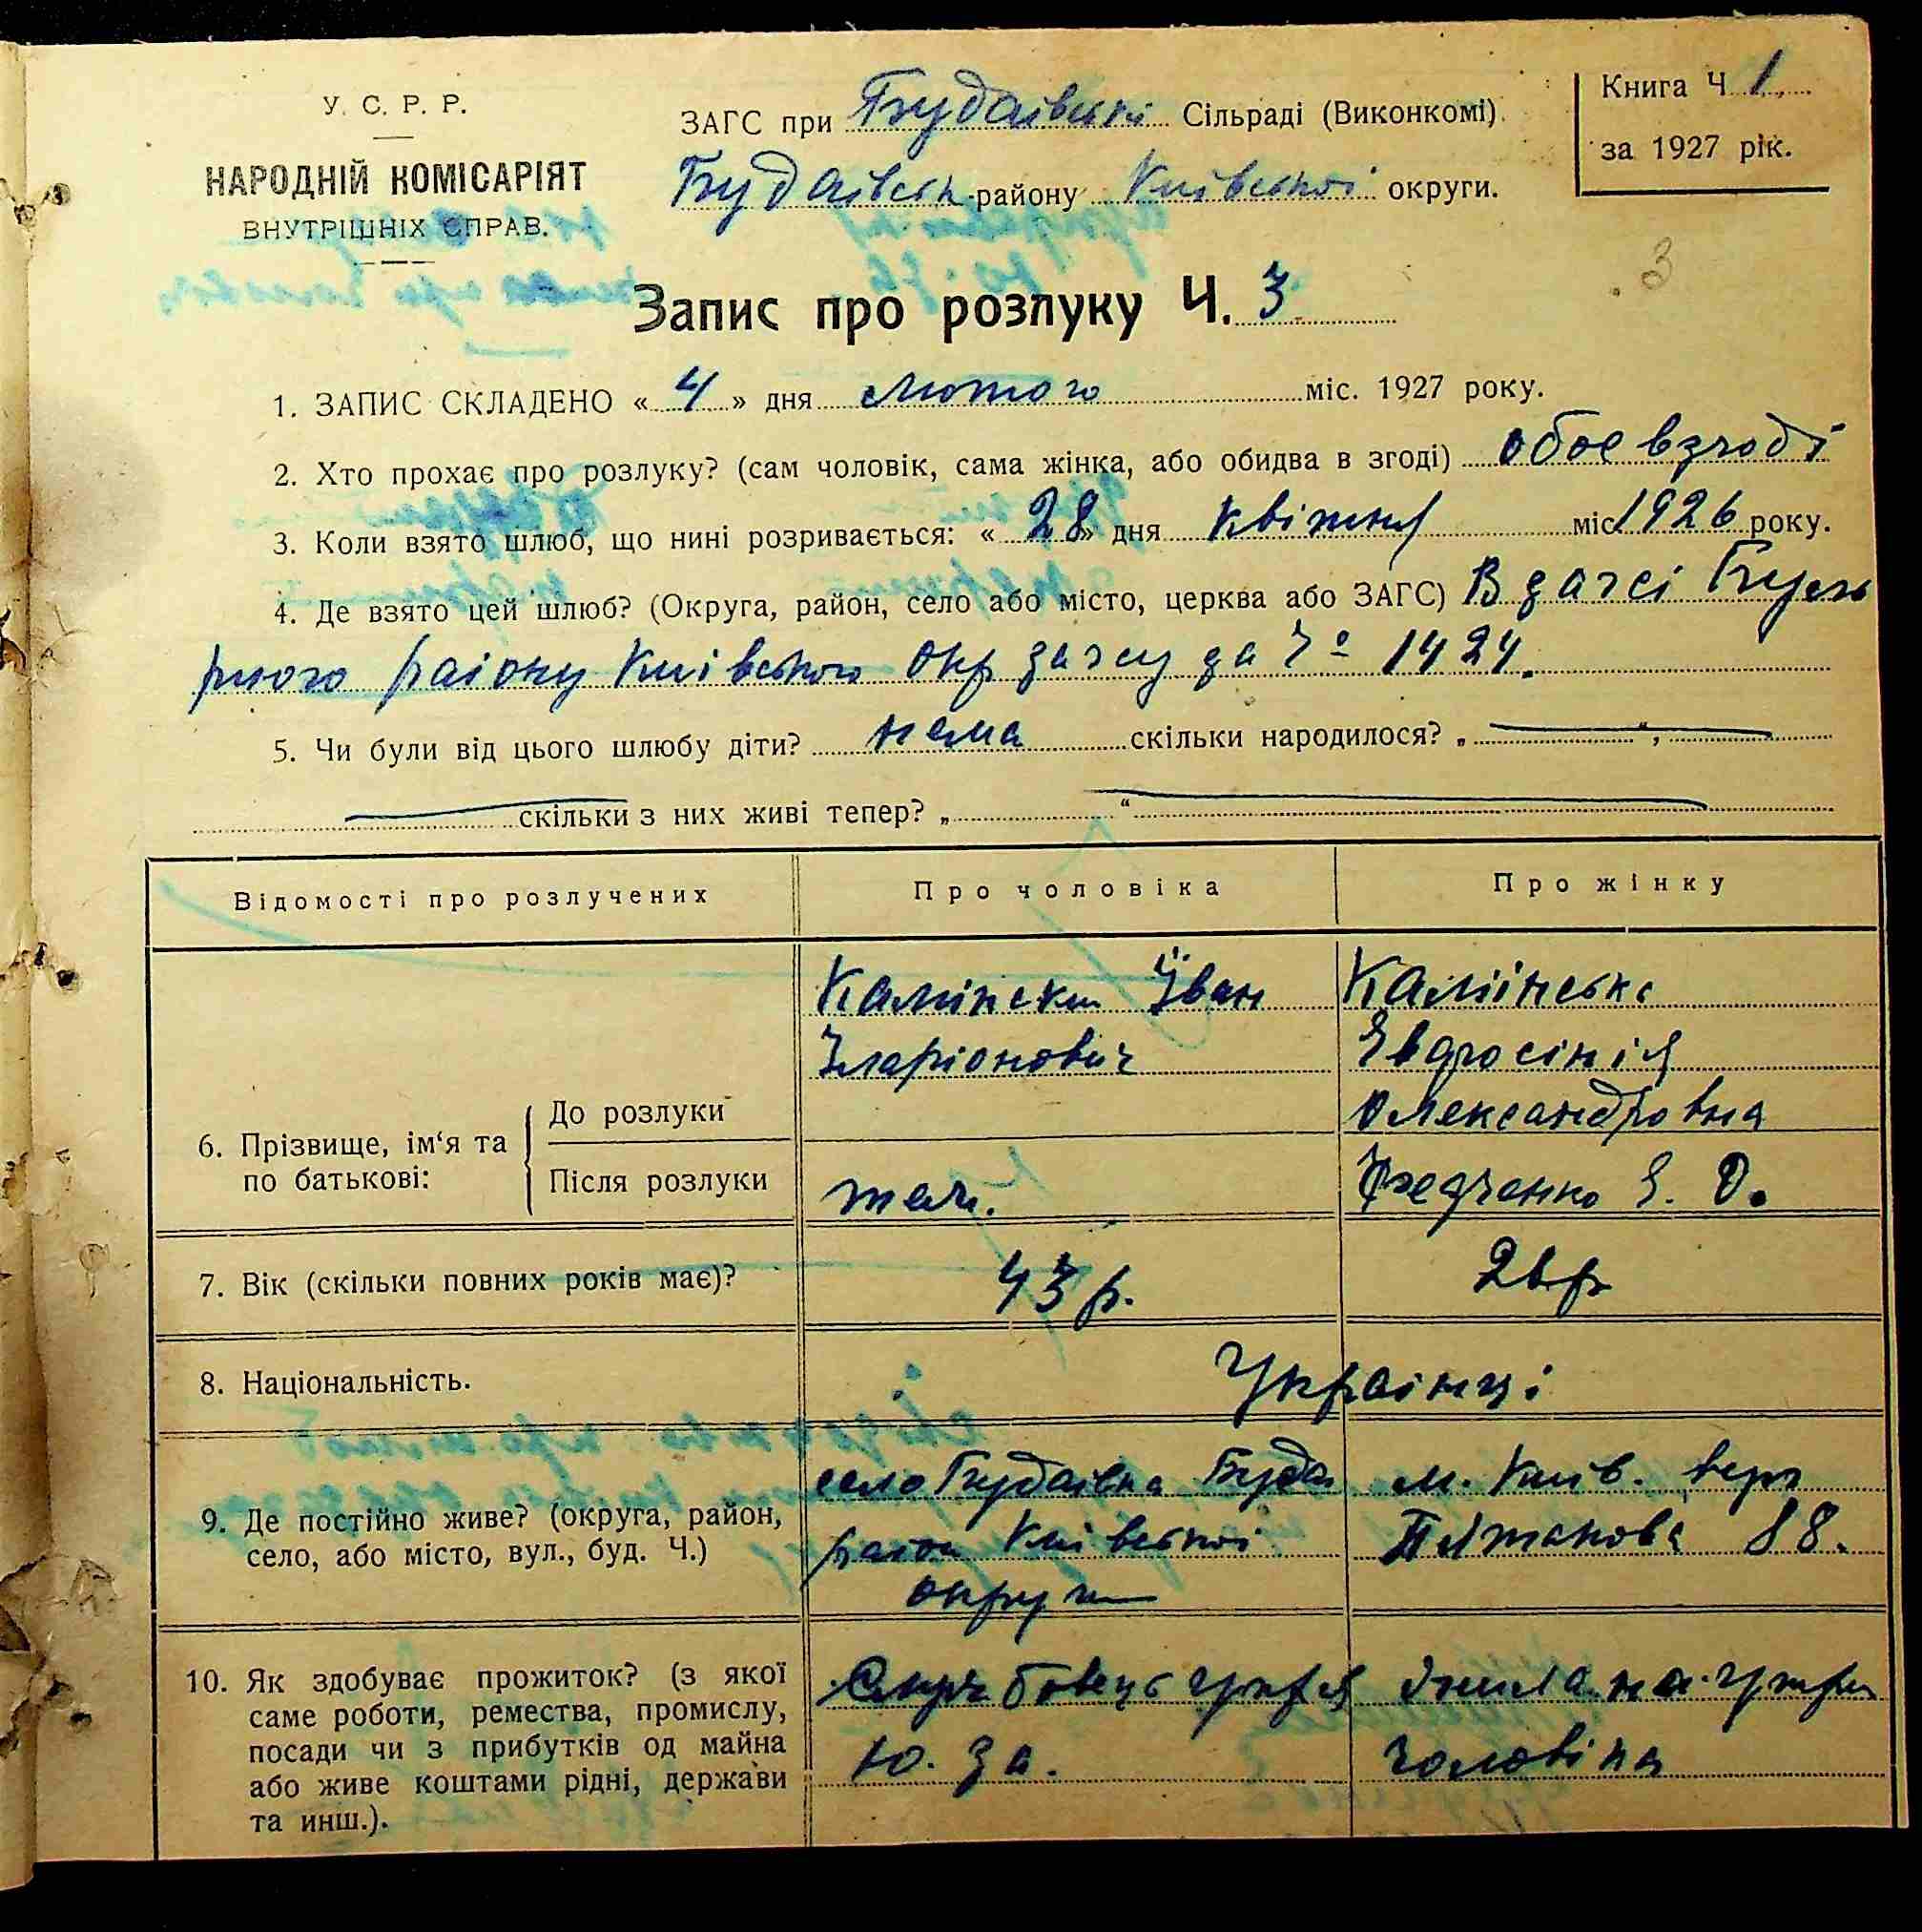 У. С. Р. Р.
НАРОДНІЙ КОМІСАРІЯТ
ВНУТРІШНІХ СПРАВ.
ЗАГС при Будаївські Сільраді (Виконкомі).
Будаївськ району Київської округи.
Книга Ч 1
за 1927 рік.
3
Запис про розлуку Ч. 3
1. ЗАПИС СКЛАДЕНО « 4 » дня Лютого міс. 1927 року.
2. Хто прохає про розлуку? (сам чоловік, сама жінка, або обидва в згоді) обое в згоді
3. Коли взято шлюб, що нині розривається: « 28 » дня квітня міс 1926 року.
4. Де взято цей шлюб? (Округа, район, село або місто, церква або ЗАГС) В загсі
району Київського Окр загсу за № 1424.
5. Чи були від цього шлюбу діти? нема скільки народилося? „ “,
скільки з них живі тепер? „ “
Відомості про розлучених
Про чоловіка
Про жінку
6. Прізвище, ім‘я та по батькові:
До розлуки
Камінски Іван
Іларіонович
Камінська
Евдросінія
Олександровна
Після розлуки
теж.
Федченко Е. О.
7. Вік (скільки повних років має)?
43 р.
26 р
8. Національність.
Украінці
9. Де постійно живе? (округа, район,
село, або місто, вул., буд. Ч.)
село Будаівка Буда
район Киівскоі
округи
м. Киів.
88.
10. Як здобуває прожиток? (з якої
саме роботи, ремества, промислу,
посади чи з прибутків од майна
або живе коштами рідні, держави
та инш.).
Ю. За.
жила на утрім
чоловіка